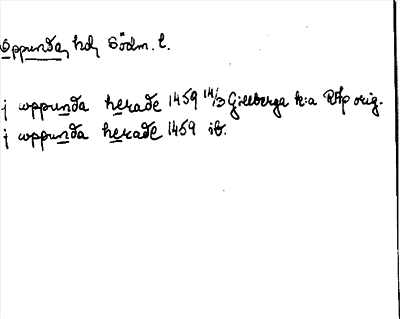 Oppunda, hd, Södm. l.
j wppunda herade 1459 14/3 Gilleberga k:a RAp orig.
j wppunda herade 1459 ib.